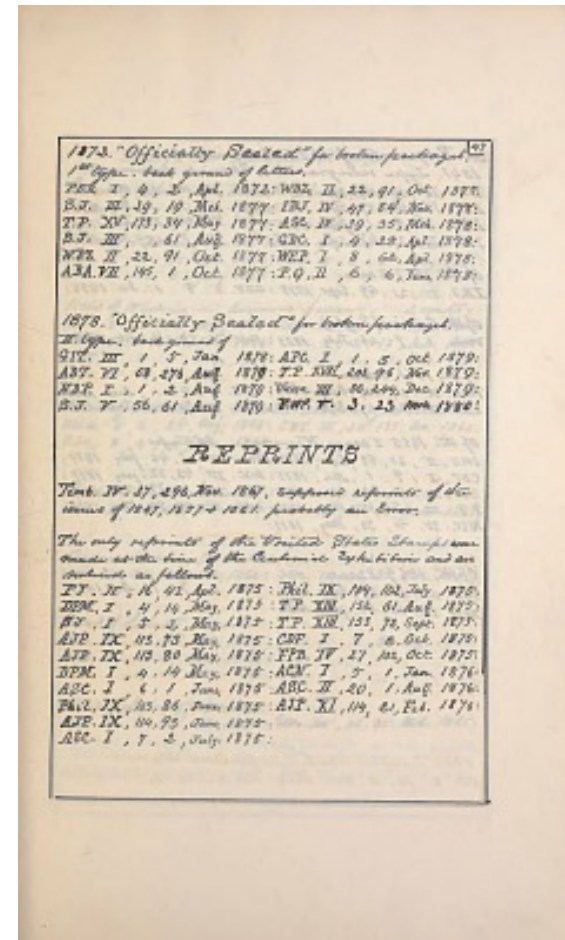 47
1873. "Officially Sealed" for broken packages.
1st type. back ground of letters.
I, 4, 2, Apl. 1872: WBZ. II, 22, 91, Oct. 1877:
B.J. III, 29, 19, Mch. 1877: IBJ. IV, 47, 54, Nov. 1877:
T.P. XV, 34, May 1877: IV, 39, 35, Mch. 1878:
B.J. III, 61, Aug. 1877: I, 4, 29, Apl. 1878:
WBZ. II, 22, 91, Oct. 1877: WEP. I, 8, 62, Apl. 1878:
ABA. VII, 145, 1, Oct. 1877: P.Q. II, 6, 6, June 1878:
1878. "Officially Sealed" for broken packages.
II type. back ground of
III, 1, 5, Jan. 1878: APC. I, 1, 5, Oct. 1879:
VI, 68, 276, Aug. 1878: T.P. XVII, 96, Nov. 1879:
I, 1, 2, Aug. 1879: III, 36, Dec. 1879:
B.J. V, 56, 61, Aug. 1879: V, 3, 23, 1880:
REPRINTS
Timb. IV, 37, 298, Nov. 1867, supposed reprints of the
issues of 1847, 1857 & 1861. probably an Error.
The only reprints of the United States Stamps was
made at the time of the Centennial Exhibition and are
noticed as follows.
II, 16, 42, Apl. 1875: Phil. IX, 104, 102, July 1875:
DPM. I, 4, 14, May, 1875: T.P. XIII, 61, Aug. 1875:
I, 5, 2, May, 1875: T.P. XIII, 72, Sept. 1875:
AJP. IX, 113, 73, May, 1875: I, 7, 8, Oct. 1875:
AJP. IX, 113, 80, May, 1875: IV, 27, 102, Oct. 1875:
DPM. I, 4, 14, May, 1875: ACN. I, 5, 1, Jan. 1876:
ASC. I, 6, 1, June, 1875: ABC. II, 20, 1, Aug. 1876:
Phil. IX, 86, June, 1875: AJP. XI, 114, 21, Feb. 1876:
AJP. IX, 114, 95, June, 1875:
ASC. I, 7, 2, July. 1875: